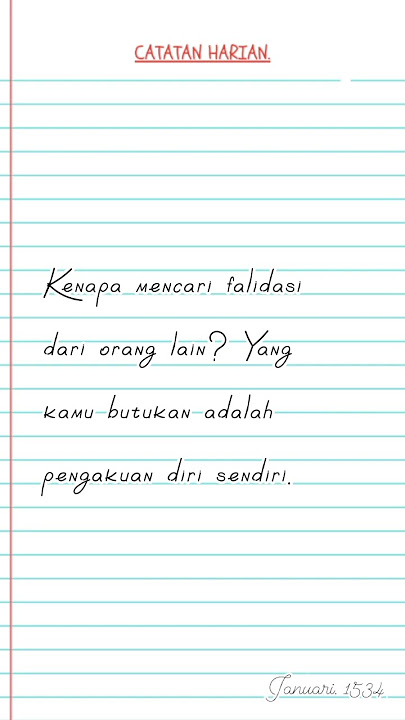 CATATAN HARIAN.
Kenapa mencari falidasi
dari orang lain? Yang
kamu butukan adalah
pengakuan diri sendiri.
Januari. 1534